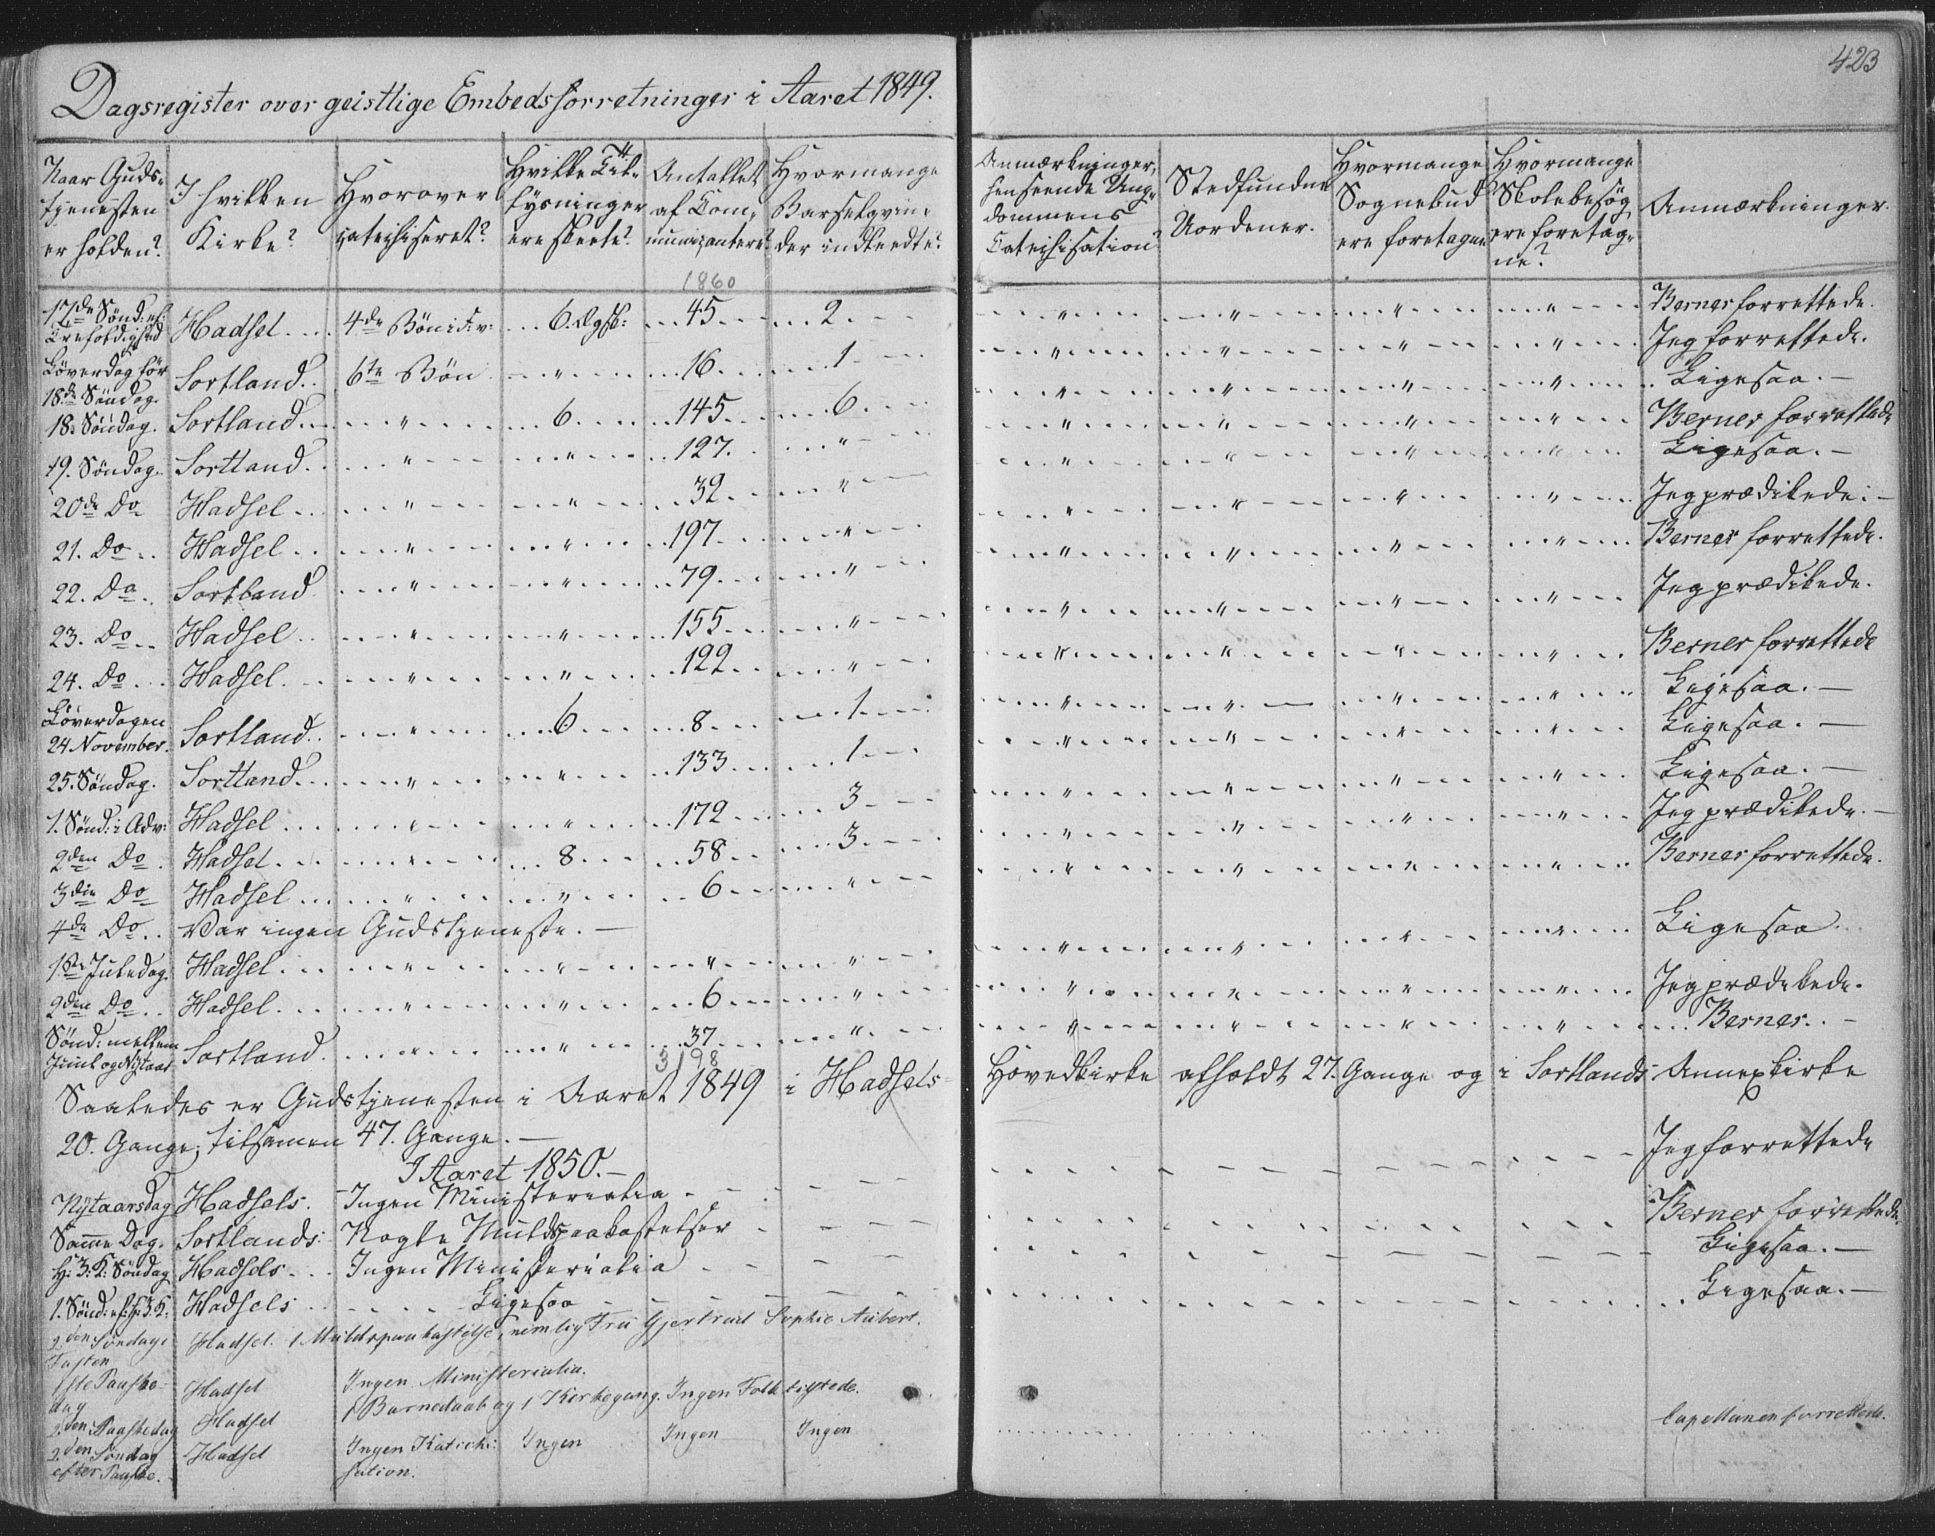 423
Dagsregister over geistlige Embedsforretninger i Aaret 1849.
Naar Guds-tjenesten er holden? | I hvilken Kirke? | Hvorover catechiseret? | Hvilke Lÿsninger ere skeete? | Antallet af Communicantere? | Hvormange Barselqvinder indleedte? | Anmærkninger, henseende Ungdommens Catechisation? | Stedfundne Uordener. | Hvormange Sognebud ere foretagne | Hvormange Skolebesøg ere foretagne? | Anmærkninger.
1860
17de Sønd: ef: Trefoldighed | Hadsel | 4de Bön i F: v: | 6. Ægtf: | 45 | 2 | " | " | " | " | Berner forrettede.
Løverdag før 18de Søndag. | Sortland | 6te Bön | " | 16 | 1 | " | " | " | " | Jeg forrettede.
18. Søndag. | Sortland | " | 6 | 145 | 6 | " | " | " | " | Ligesaa. –
19. Søndag. | Sortland | " | " | 127 | " | " | " | " | " | Berner forrettede
20de Do | Hadsel | " | " | 32 | " | " | " | " | " | Ligesaa. –
21. Do | Hadsel | " | " | 197 | " | " | " | " | " | Jeg prædikede. –
22. Do | Sortland | " | " | 79 | " | " | " | " | " | Berner forrettede.
23. Do | Hadsel | " | " | 155 | " | " | " | " | " | Jeg prædikede.
24. Do | Hadsel | " | " | 122 | " | " | " | " | " | Berner forrettede
Løverdagen 24 November. | Sortland | " | 6 | 8 | 1 | " | " | " | " | Ligesaa. –
25. Søndag. | Sortland | " | " | 133 | 1 | " | " | " | " | Ligesaa. –
1. Sønd: i Adv: | Hadsel | " | " | 172 | 3 | " | " | " | " | Ligesaa. –
2den Do | Hadsel | " | 8 | 58 | 3 | " | " | " | " | Jeg prædikede. –
3die Do | Hadsel | " | " | 6 | " | " | " | " | " | Berner forrettede.
4de Do | Var ingen Gudstjeneste. –
1ste Juledag. | Hadsel | " | " | " | " | " | " | " | " | Ligesaa
2den Do | Hadsel | " | " | 6 | " | " | " | " | " | Jeg prædikede.
Sønd: mellem Juul og Nÿtaar | Sortland | " | " | 37 | " | " | " | " | " | Berner. –
3198
Saaledes er Gudstjenesten i Aaret 1849 i Hadsels Hovedkirke afholdt 27. Gange og i Sortlands Annexkirke
20. Gange, tilsamen 47. Gange. –
I Aaret 1850. –
Nÿtaarsdag | Hadsels. | Ingen Ministerialia | Jeg forrettede
Samme Dag. | Sortlands: | Nogle Muldpaakastelser | Berner forrettede.
H: 3: K: Søndag | Hadsels | Ingen Ministerialia | Ligesaa. –
1. Sønd: ef: H. 3 K: | Hadsels | Ligesaa | Ligesaa. –
2den Søndag i Fasten | Hadsel. | 1 Muldpaakastelse, nemlig Fru Gjertrud Sophie Aubert.
1ste Paaskedag | Hadsel | Ingen Ministerialia.
2den Paaskedag | Hadsel | 1 Barnedaab og 1 Kirkegang. Ingen Folk tilstede.
2den Søndag efter Paaske. | Hadsel | Ingen Katechisation. | Ingen | Ingen | Ingen | Capellanen forrettede.